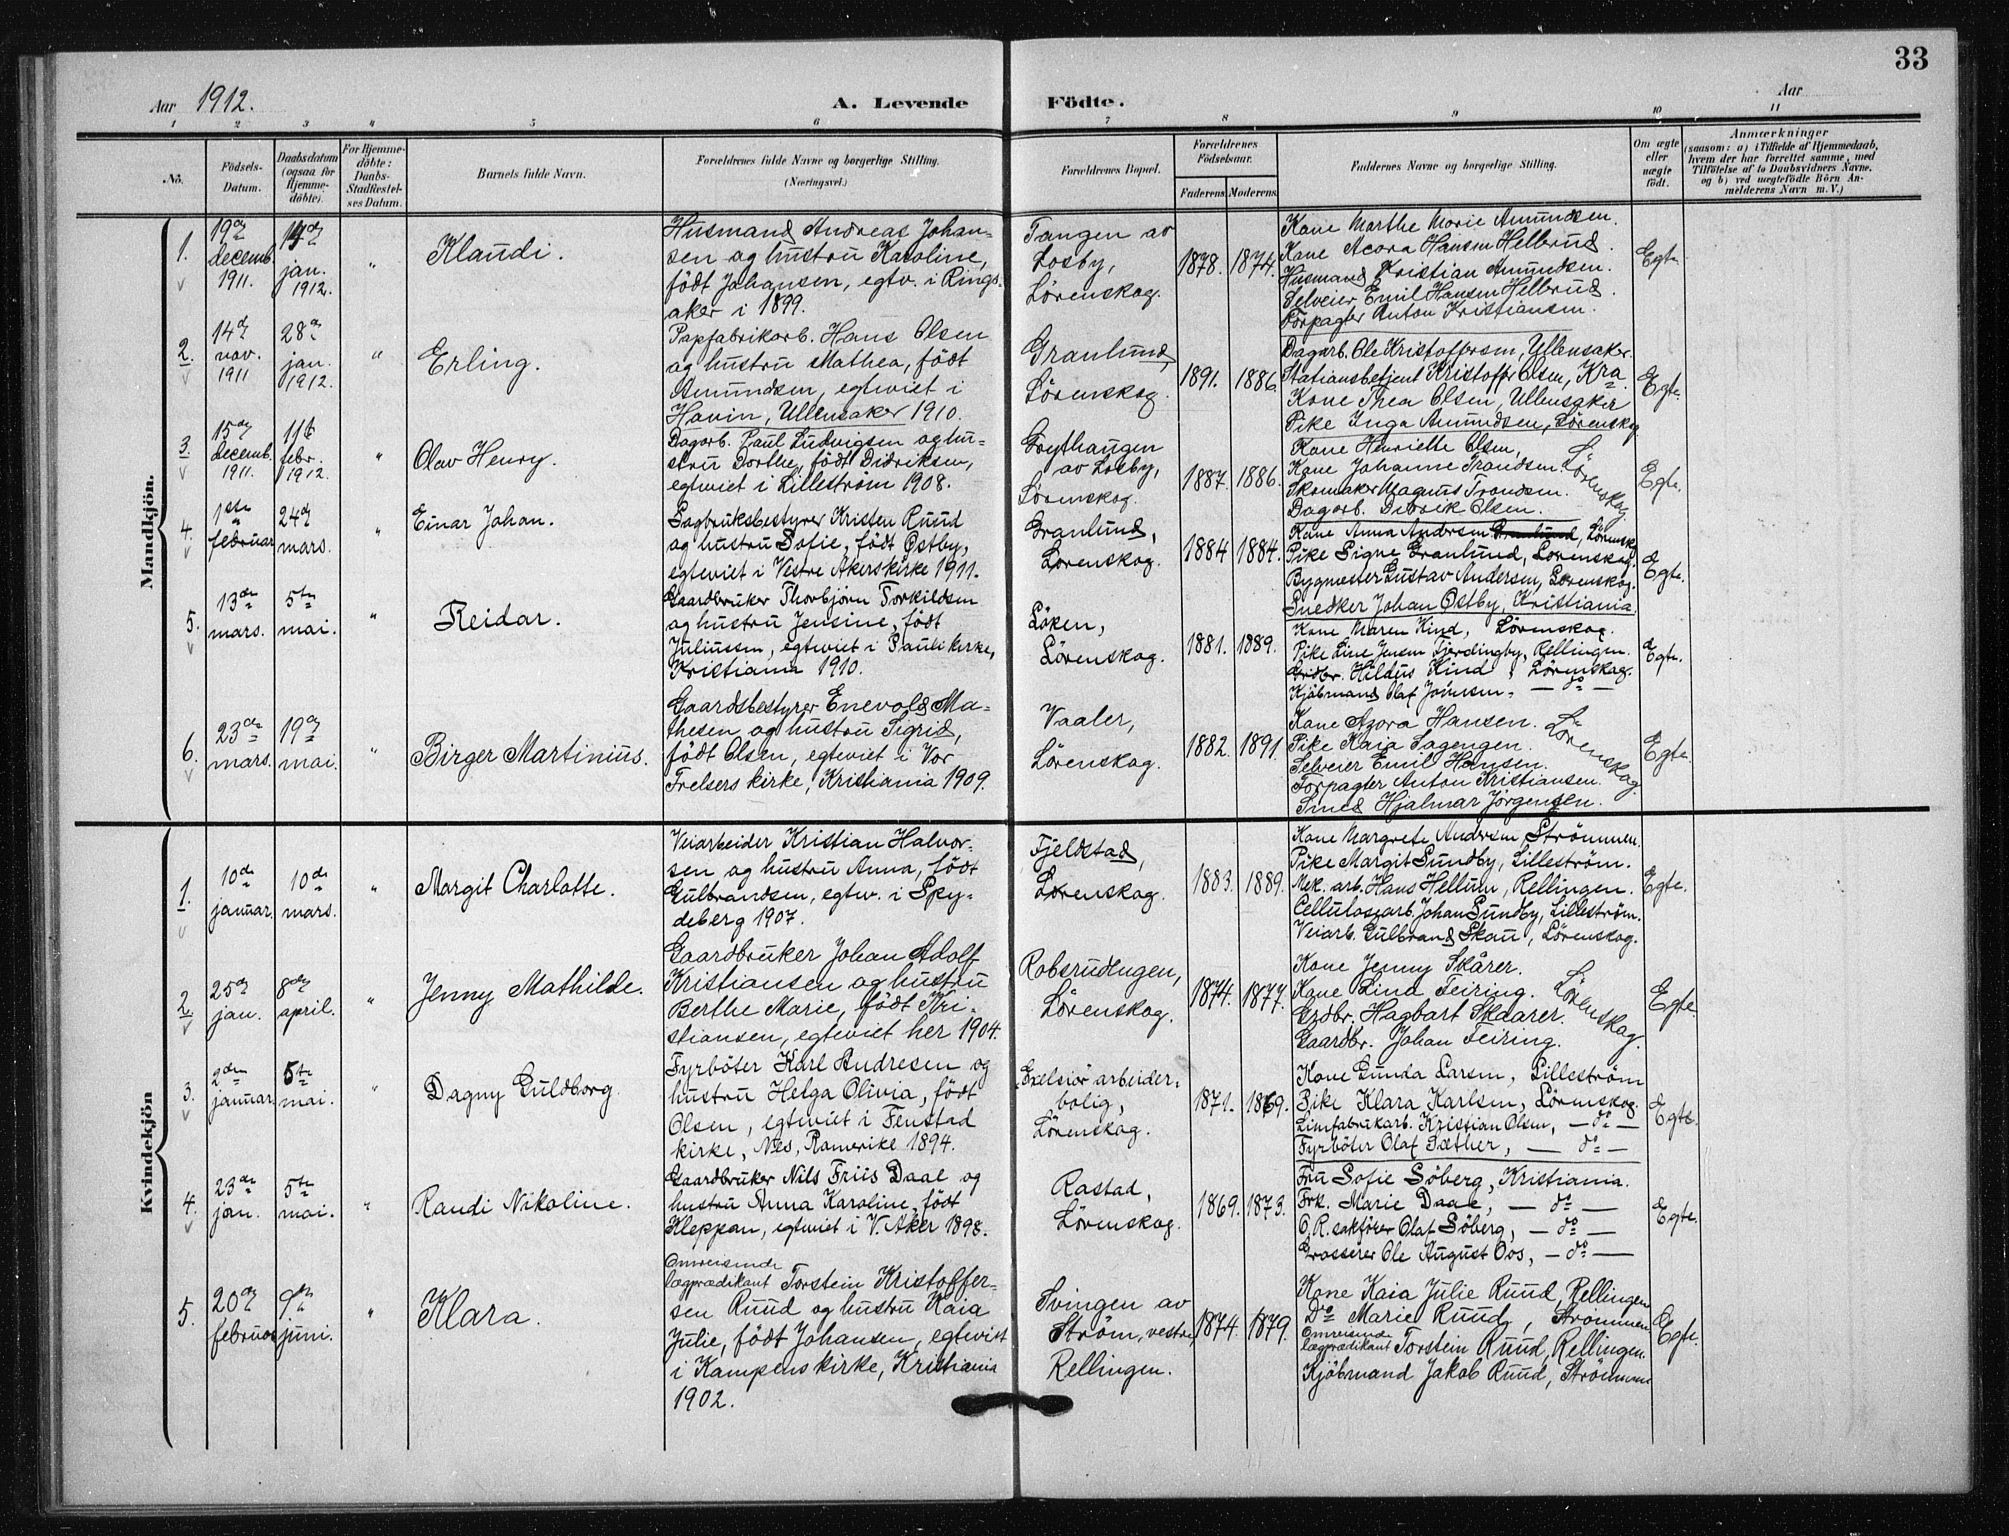 33
Aar 1912.
A. Levende Födte.
Aar
1 2 3 4 5 6 7 8 9 10 11
No.
Födsels-
Datum.
Daabsdatum
(ogsaa for
Hjemme-
döbte).
For Hjemme-
döbte:
Daabs-
Stadfæstel-
ses Datum.
Barnets fulde Navn.
Forældrenes fulde Navne og borgerlige Stilling.
(Næringsvei.)
Forældrenes Bopæl.
Forældrenes
Födselsaar.
Faderens. Moderens.
Faddernes Navne og borgerlige Stilling.
Om ægte
eller
uægte
födt.
Anmærkninger
(saasom: a) i Tilfælde af Hjemmedaab,
hvem der har forrettet samme, med
Tilföielse af to Daabsvidners Navne,
og b) ved uægtefödte Börn An-
melderens Navn m. V.)
Mandkjön.
1.
19de
decemb.
1911.
jan.
1912.
"
Klaudi.
Husmand Andreas Johan-
sen og hustru Karoline,
født Johansen, egtv. i Rings-
aker i 1899.
Tangen av
Losby,
Lörenskog.
1878. 1874.
Kone Marthe Marie Amundsen.
Kone Acora Hansen Hellerud.
Husmand Kristian Amundsen.
Selveier Emil Hansen Hellerud.
Forpagter Anton Kristiansen.
Egte.
2.
14de
nov.
1911
28de
jan.
1912.
"
Erling.
Papfabrikarb. Hans Olsen
og hustru Mathea, född
Amundsen, egteviet i
Hovin, Ullensaker 1910.
Granlund,
Lörenskog.
1891. 1886.
Dagarb. Ole Kristoffersen, Ullensaker.
Stationsbetjent Kristoffer Olsen, Kra.
Kone Thea Olsen, Ullensaker
Pike Inga Amundsen, Lörenskog
Egte.
3.
15de
decemb.
1911.
11te
febr.
1912.
"
Olav Henry.
Dagarb. Paul Ludvigsen og hu-
stru Dorthe, født Didriksen,
egteviet i Lilleström 1908.
av Losby,
Lörenskog.
1887. 1886.
Kone Henriette Olsen,
Kone Johanne Trondsen
Skomaker Magnus Trondsen.
Dagarb. Didrik Olsen.
Lörenskog.
Egte.
4.
1ste
februar
24de
mars.
"
Einar Johan.
Sagbruksbestyrer Kristen Ruud
og hustru Sofie, født Østby,
egteviet i Vestre Akerskirke 1911.
Granlund,
Lörenskog.
1884 1884.
Kone Anna Andersen Granlund, Lörensk.
Pike Signe Granlund, Lörenskog.
Bygmester Gustav Andersen, Lörenskog.
Snedker Johan Østby, Kristiania.
Egte.
5.
13de
mars.
5te
mai.
"
Reidar.
Gaardbruker Thorbjørn Torkildsen
og hustru Jensine, født
Juliussen, egteviet i Pauli kirke,
Kristiania 1910.
Löken,
Lörenskog.
1881. 1889.
Kone Maren Kind, Lörenskog.
Pike Line Jensen Fjerdingby, Rellingen.
Grdbr. Hildus Kind, Lörenskog.
Kjöbmand Olaf Jonsen, — do —
Egte.
6.
23de
mars.
19de
mai.
"
Birger Martinius.
Gaardsbestyrer Enevold Ma-
thesen og hustru Sigrid,
född Olsen, egteviet i Vor
Frelsers kirke, Kristiania 1909.
Vaaler,
Lörenskog.
1882. 1891.
Kone Azora Hansen.
Pike Kaia Sagengen.
Selveier Emil Hansen.
Forpagter Anton Kristiansen.
Smed Hjalmar Jörgensen.
Lörenskog.
Egte.
Kvindekjön
1.
10de
januar.
10de
mars.
"
Margit Charlotte.
Veiarbeider Kristian Halvor-
sen og hustru Anna, född
Gulbrandsen, egtv. i Spy-
deberg 1907.
Fjeldstad,
Lörenskog.
1883. 1889.
Kone Margrete Andersen, Strömmen.
Pike Margit Sundby, Lilleström.
Mek. arb. Hans Hellum, Rellingen.
Cellulosearb. Johan Sundby, Lilleström.
Veiarb. Gulbrand Skau, Lörenskog.
Egte.
2.
25de
jan.
8de
april.
"
Jenny Mathilde.
Gaardbruker Johan Adolf
Kristiansen og hustru
Berthe Marie, född Kri-
stiansen, egteviet her 1904.
Robsrudengen,
Lörenskog.
1874. 1877.
Kone Jenny Skårer.
Kone Lina Feiring.
Grdbr. Hagbart Skaarer.
Gaardbr. Johan Feiring.
Lörenskog.
Egte.
3.
2den
januar.
5te
mai.
"
Dagny Guldborg
Fyrböter Karl Andresen og
hustru Helga Olivia, född
Olsen, egteviet i Fenstad
kirke, Nes, Romerike 1894.
Exelsior arbeider-
bolig,
Lörenskog.
1871. 1869.
Kone Gunda Larsen, Lilleström
Pike Klara Karlsen, Lörenskog.
Limfabrikarb. Kristian Olsen, — do —
Fyrböter Olaf Sæther, — do —
Egte.
4.
23de
jan.
5te
mai.
"
Randi Nikoline.
Gaardbruker Nils Friis Daae og
hustru Anna Karoline, född
Kleppan, egteviet i V. Aker 1898.
Rastad,
Lörenskog.
1869. 1873.
Fru Sofie Söberg, Kristiania.
Frk. Marie Daae, — do —
O.R.sakförer Olaf Söberg, — do —
Grosserer Ole August Oos, — do —
Egte.
5.
20de
februar
9de
juni.
"
Klara.
Omreisende
lægprædikant Torstein Kristoffer-
sen Ruud og hustru Kaia
Julie, född Johansen, egteviet
i Kampens kirke, Kristiania
1902.
Svingen av
Ström, vestre,
Rellingen.
1874. 1879.
Kone Kaia Julie Ruud, Rellingen
Do Marie Ruud, Strömmen
Omreisende
lægprædikant Torstein Ruud, Rellingen.
Kjöbmand Jakob Ruud, Strömmen
Egte.